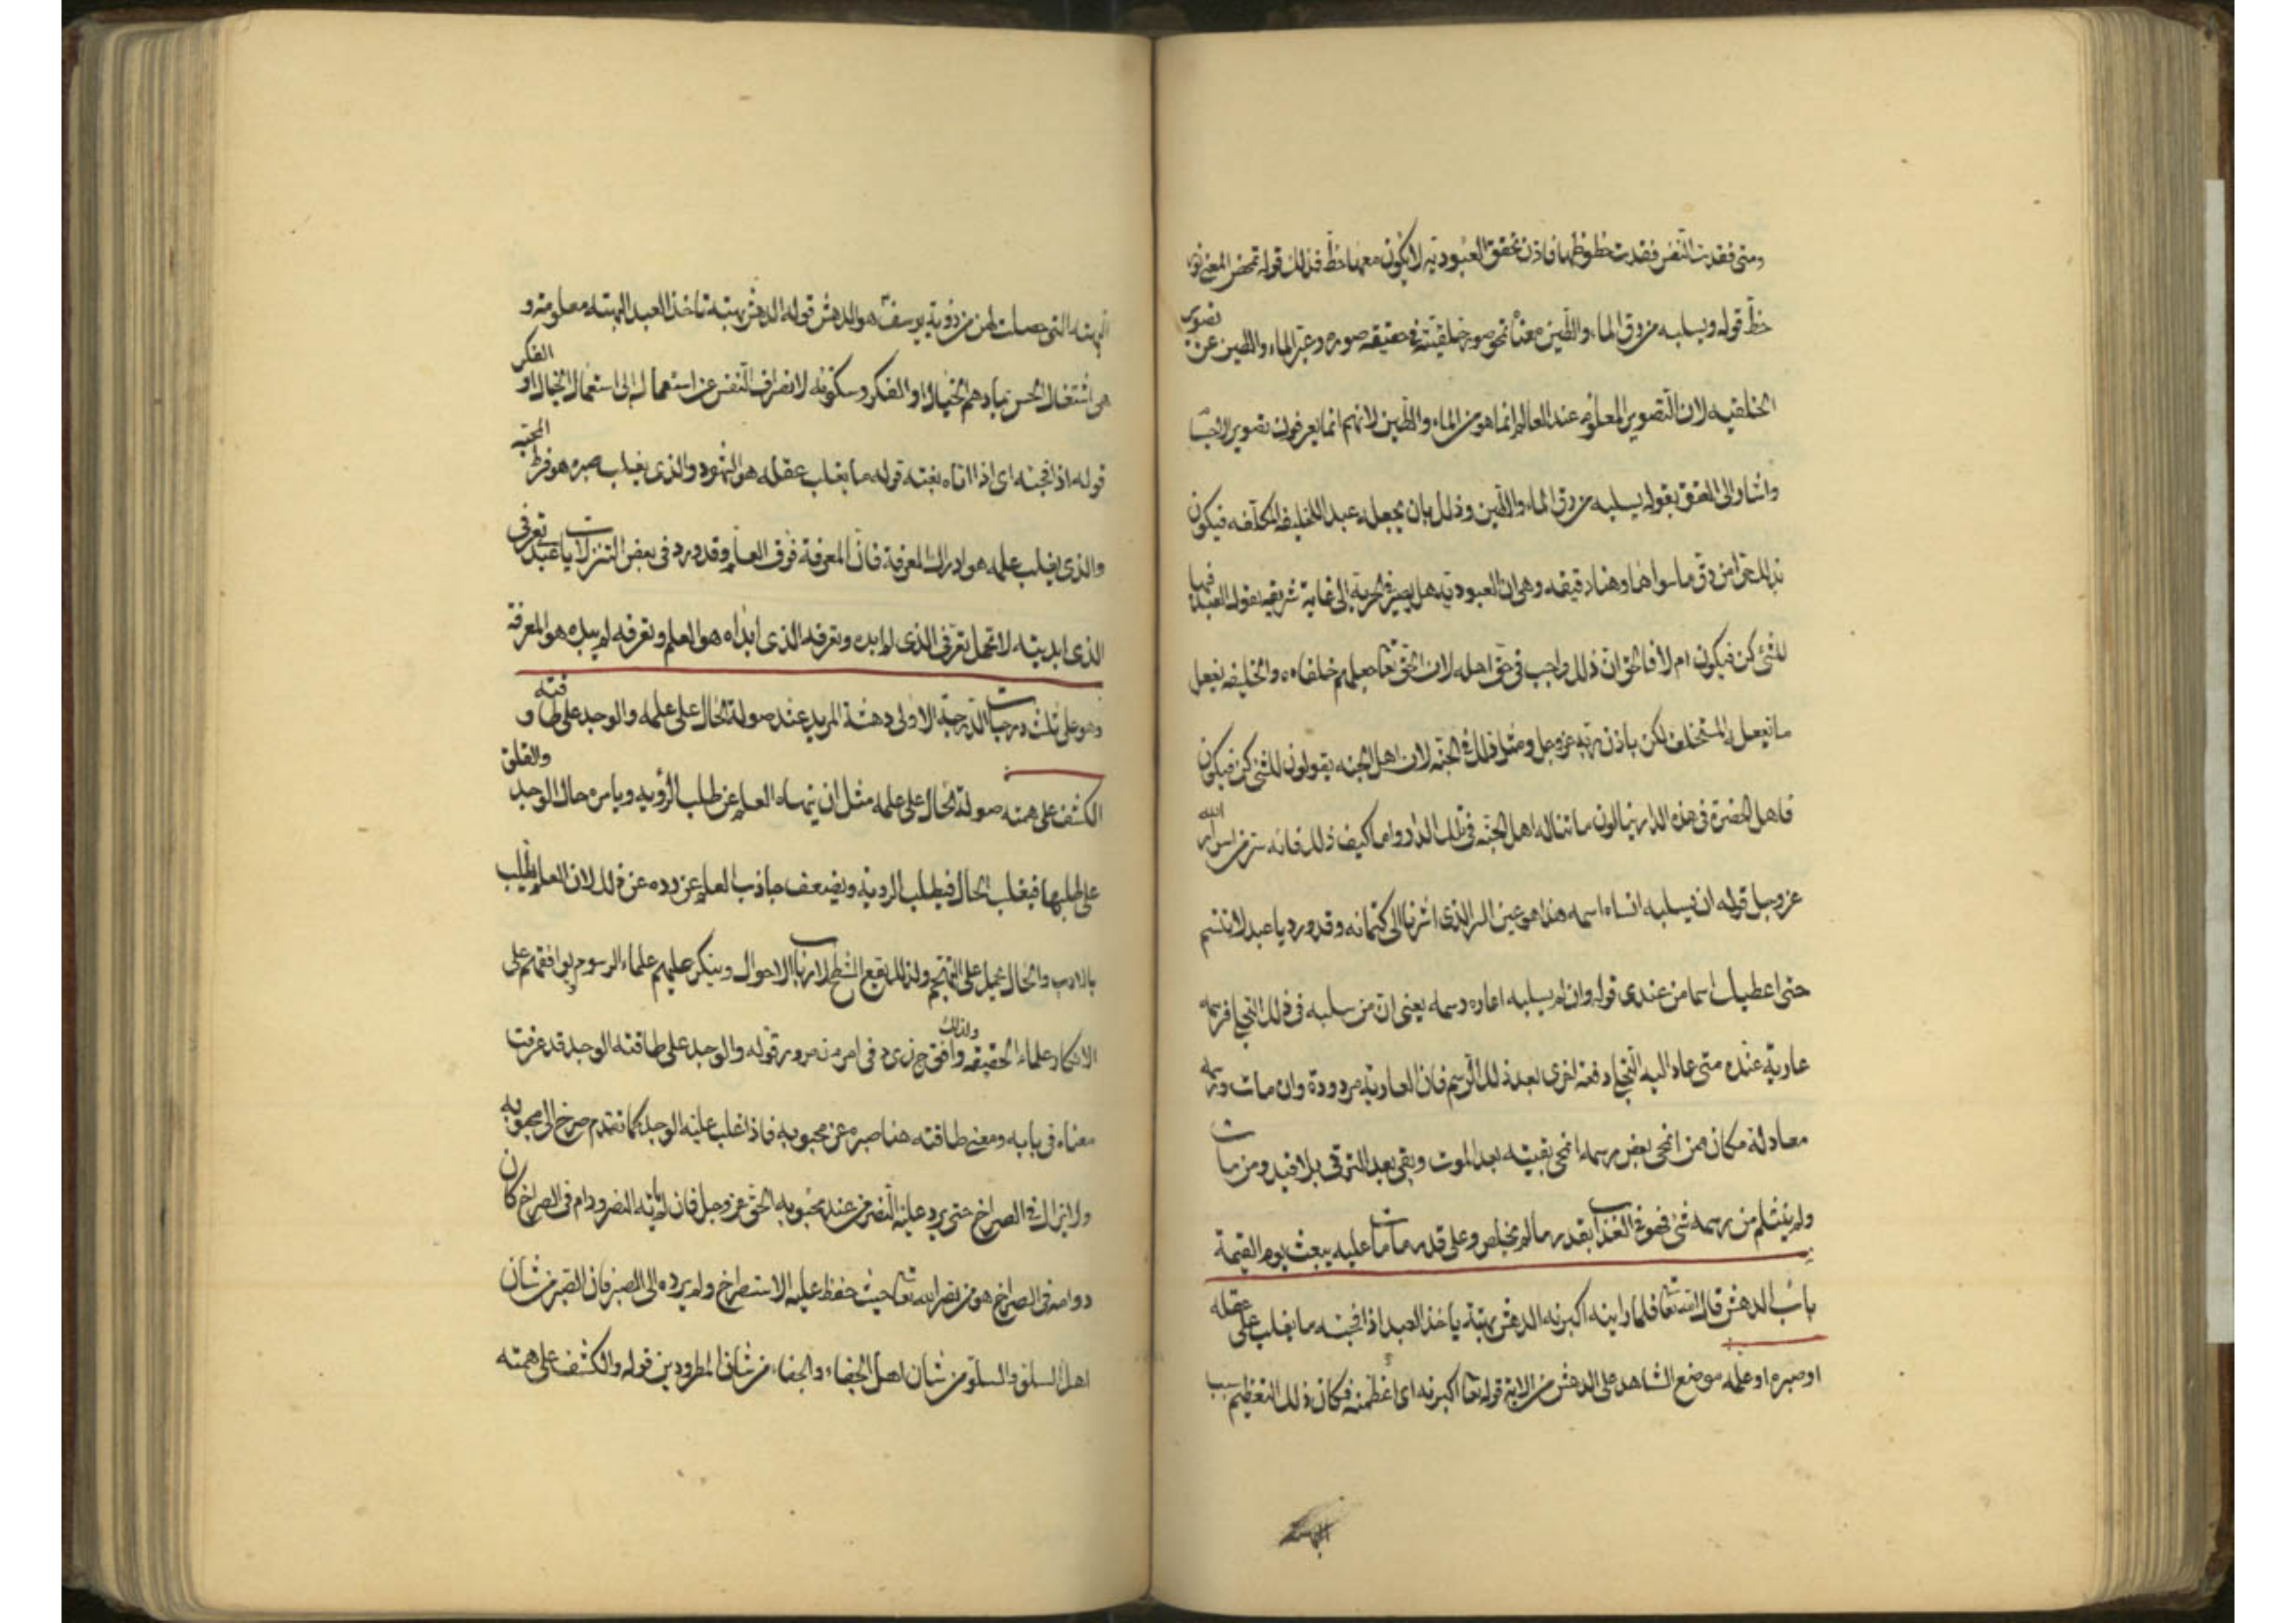 ومتى فقدت النفس فقدت حظوظها فاذن تحقق العبودية لا يكون معها حظ فذلك قوله تمحض المعنى
حظ قوله ويسلبه من رق الماء والطين معناه نحو صورة خلقيته في حقيقة صوره وعبر الماء والطين عن تصوير
الخلقيه لان التصوير المعلوم عند العالم انما هو من الماء والطين لانهم انما يعرفون تصوير
واشار الى العتق بقوله يسلبه من رق الماء والطين وذلك بان يجعله عبد الخليفه المكلفه فيكون
بذلك حرا من رق ما سواها وهنا دقيقه وهى ان العبودية هل يصير في الحرية الى غاية شريفه يقول العبد فيها
للشئ كن فيكون ام لا فالحق ان ذلك واجب في حق اهله لان الحق تعا جعلهم خلفاءه والخليفه يفعل
ما يفعله المستخلف لكن باذن ربه عز وجل ومثل ذلك في الجنة لان اهل الجنه يقولون للشئ كن فيكون
فاهل الحضرة في هذه الدار ينالون ما تناله اهل الجنه في تلك الدار واما كيف ذلك فانه سر من اسرار الله
عز وجل قوله ان يسلبه انساه اسمه هذا هو عين السر الذى اشرنا الى كتمانه وقد ورد يا عبد لا تتسم
حتى اعطيك اسما من عندى قوله وان لم يسلبه اعاره رسمه يعنى ان من سلبه في ذلك التجلى فرسمه
عارية عنده متى عاد اليه التجلى دفعة اخرى بعد ذلك الرسم فان العارية مردودة وان مات ورسمه
معادلة مكان فمن انمحى بعض رسمه انمحى بقيته بعد الموت وبقى بعد الترقى بلا قيد ومن مات
ولم ينثلم من رسمه شئ فهو في العذاب بقدر ما لم يخلص وعلى قدر ما مات عليه يبعث يوم القيمة
باب الدهش قال الله تعا فلما راينه اكبرنه الدهش بهتة ياخذ العبد اذا فجئه ما يغلب على عقله
او صبره او علمه موضع الشاهد على الدهش من الاية قوله تعا اكبرنه اى اعظمنه فكان ذلك التعظيم سبب
البهتة
البهته التى حصلت لهن من رؤية يوسف هو الدهش قوله الدهش بهتة تاخذ العبد البهته معلومة و
هى اشتغال الحس بما دهم الخيال او الفكر وسكونه لانصراف النفس عن استعماله الى استعمال الخيال او الفكر
قوله اذا فجئه اى اذا اتاه بغتة قوله ما يغلب عقله هو الشهود والذى يغلب صبره هو فرط المحبة
والذى يغلب علمه هو ادراك المعرفة فان المعرفة فوق العلم وقد ورد في بعض التنزلات يا عبد تعرفى
الذى ابديته لا تحمل تعرفى الذى لم ابده وتعرفه الذى ابداه هو العلم وتعرفه لم يبده هو المعرفة
وهو على ثلث درجات الدرجة الاولى دهشة المريد عند صولة الحال على علمه والوجد على طاقته و
الكشف على همته صولة الحال على علمه مثل ان ينهاه العلم عن طلب الرؤية ويامره حال الوجد والقلق
على طلبها فيغلب الحال فيطلب الروية ويضعف جاذب العلم عن رده عن ذلك لان العلم يطلب
بالادب والحال يحمل على التهجم ولذلك يقع الشطح لارباب الاحوال وينكر عليهم علماء الرسوم يوافقهم على
الانكار علماء الحقيقه ولذلك وافق ج ن ى د في امر من مر ور قوله والوجد على طاقته الوجد قد عرفت
معناه في بابه ومعنى طاقته هنا صبره عن محبوبه فاذا غلب عليه الوجد كما تقدم صرخ الى محبوبه
ولا يزال في الصراخ حتى يرد عليه النصر من عند محبوبه الحق عز وجل فان لم ياته النصر ودام في الصراخ كان
دوامه في الصراخ هو من نصر الله تعا حيث حفظ عليه الاستصراخ ولم يرده الى الصبر فان الصبر من شان
اهل السلو والسلو من شان اهل الجفاء والجفاء من شان المطرودين قوله والكشف على همته